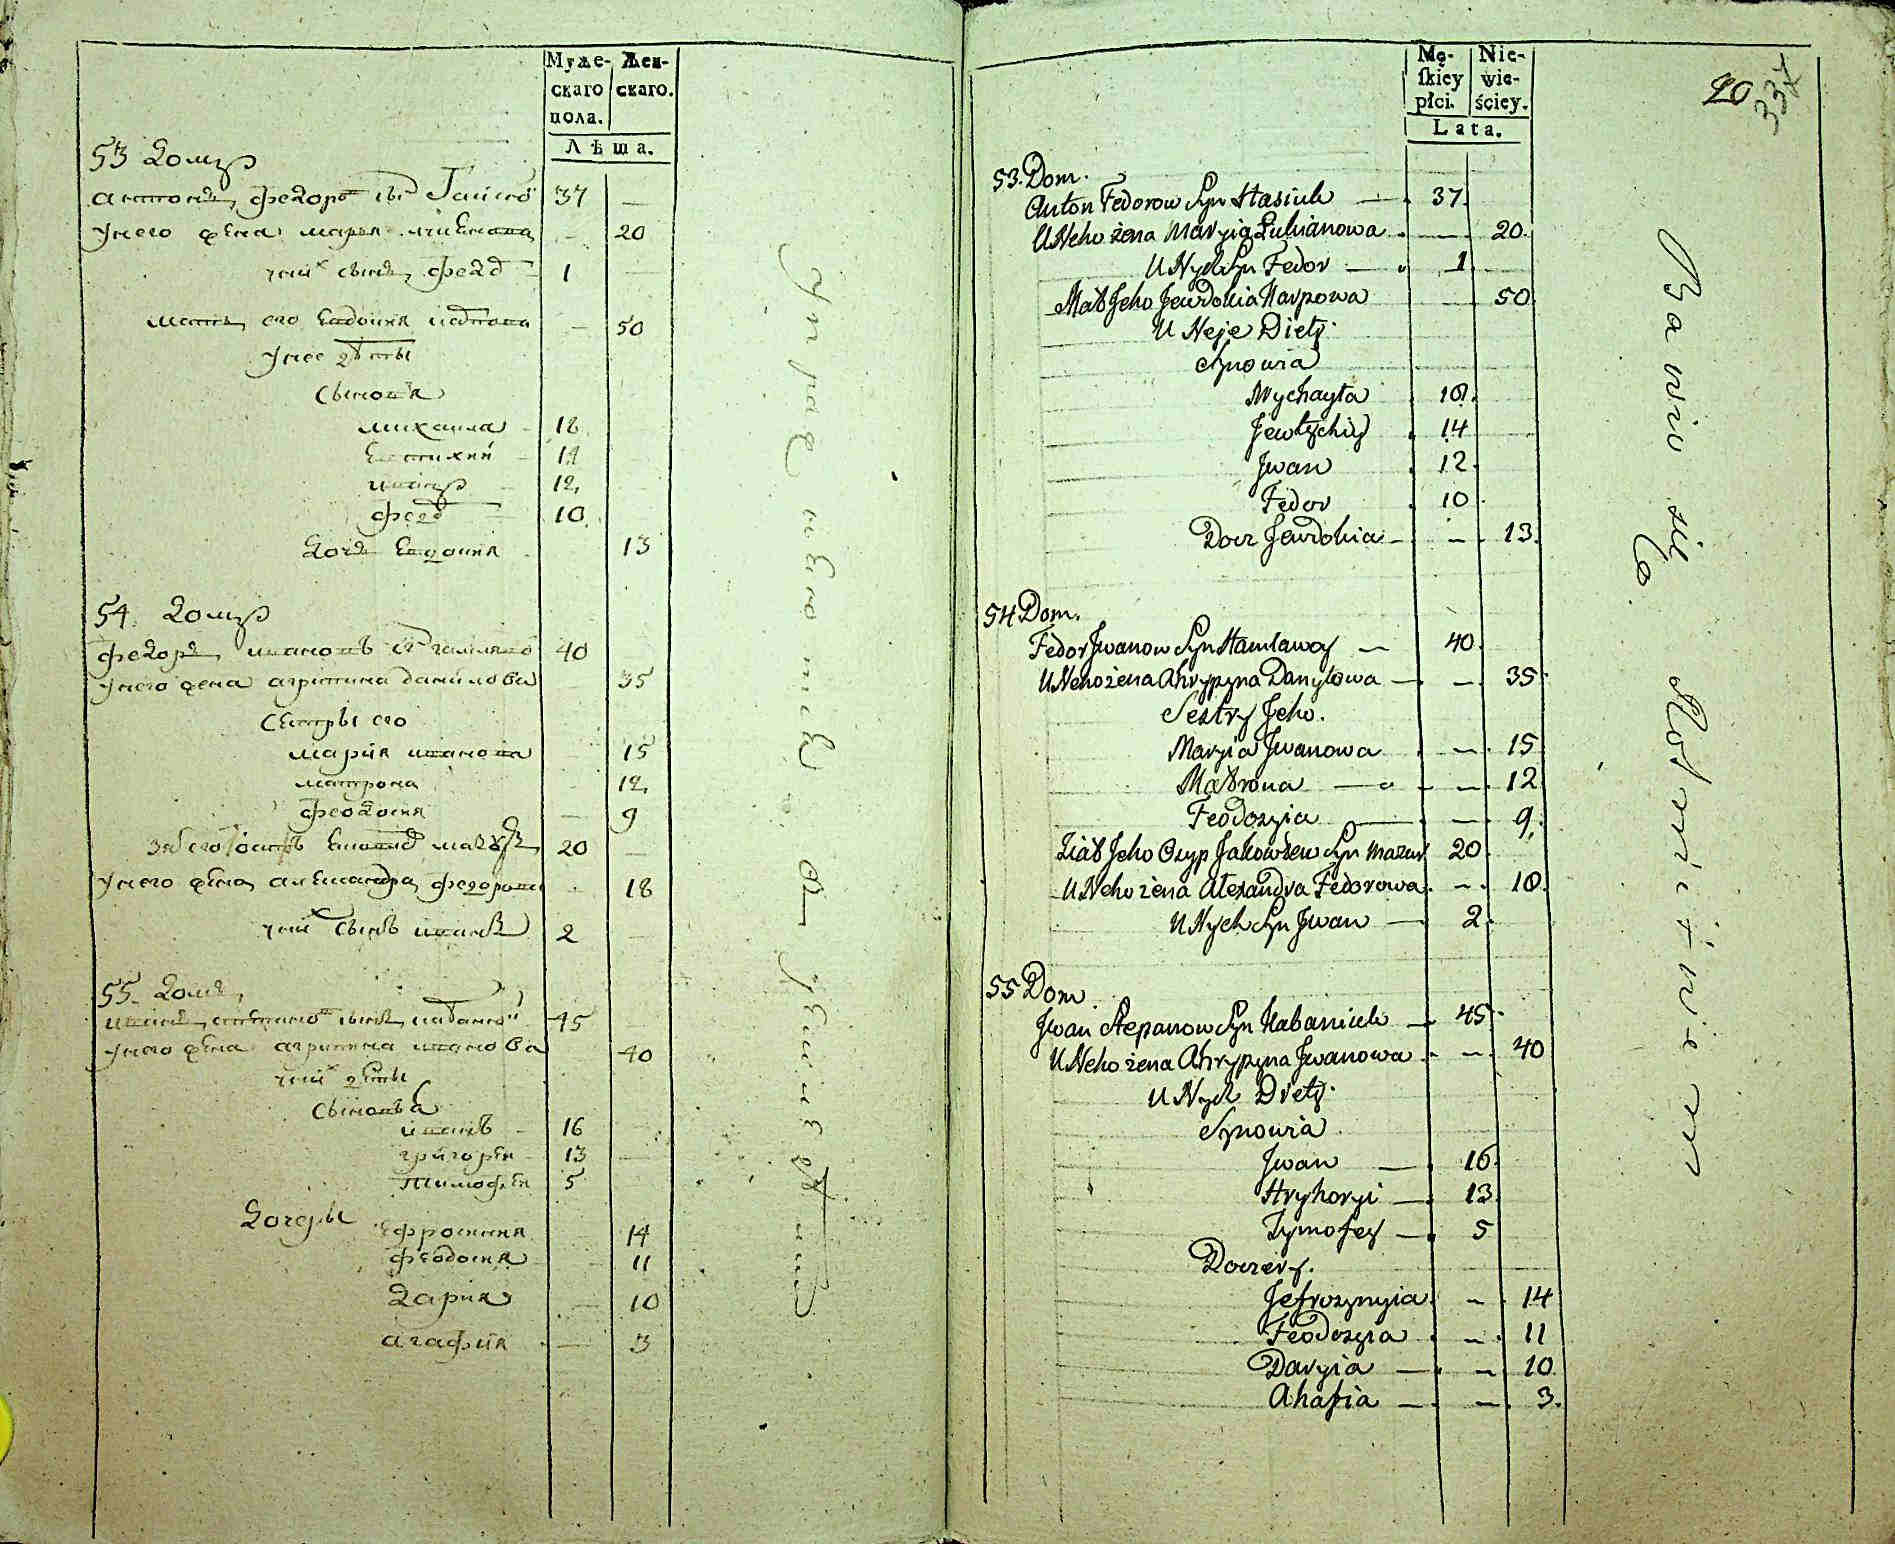 Муже-
скаго
пола.
Жен-
скаго.
Лѣта.
53 Домъ
Антонъ, Федоровъ сынъ 37
У него жена Марья 20
у них сынъ Федор 1
мать его Евдокия 50
у нее дѣти
Сыновя
михаила 18
Евтихий 14
иванъ 12
Федор 10
Дочь Евдокия 13
54. Домъ
Федоръ Ивановъ сынъ 40
У него жена агрипина данилова 35
Сестры его
мария иванова 15
матрона 12
Феодосия 9
Зять его 20
У него жена александра федорова 18
у них Сынъ иванъ 2
55. Домъ
иванъ степановъ сынъ 45
У него жена агрипина иванова 40
у них дети
Сыновья
иванъ 16
григорей 13
тимофей 5
Дочеры
ефросиния 14
феодосия 11
Дария 10
агафия 3
Mę-
ſkiey
płci.
Nie-
wie-
ściey.
Lata.
20
337
53. Dom.
Anton Fedorow Syn Hasiuk — 37.
U Neho żena Maryia Łukianowa — 20.
U Nych Syn Fedor — 1.
Mat Jeho Jewdokia Karpowa 50
U Neje Diety.
Synowia
Mychayła 18.
Jewtychiy 14
Jwan 12.
Fedor 10.
Docz Jewdokia — — 13.
54 Dom.
Fedor Jwanow Syn — 40.
U Neho żena Ahrypyna Danyłowa — — 35.
Sestry Jeho.
Maryia Jwanowa — 15
Matrona — — 12
Feodozyia — — 9.
Ziat Jeho Osyp Jakowlew Syn Mazur 20.
U Neho żena Alexandra Fedorowa. — 18.
U Nych Syn Jwan — 2.
55 Dom.
Jwan Stepanow Syn Kabaniuk — 45.
U Neho żena Ahrypyna Jwanowa. — 40
U Nych Diety.
Synowia
Jwan — 16.
Hryhoryi — 13.
Tymofey — 5
Doczery.
Jefrozynyia. — 14
Feodozyia — 11
Daryia — — 10.
Ahafia — — 3.
Bawiu się Rolnictwiem